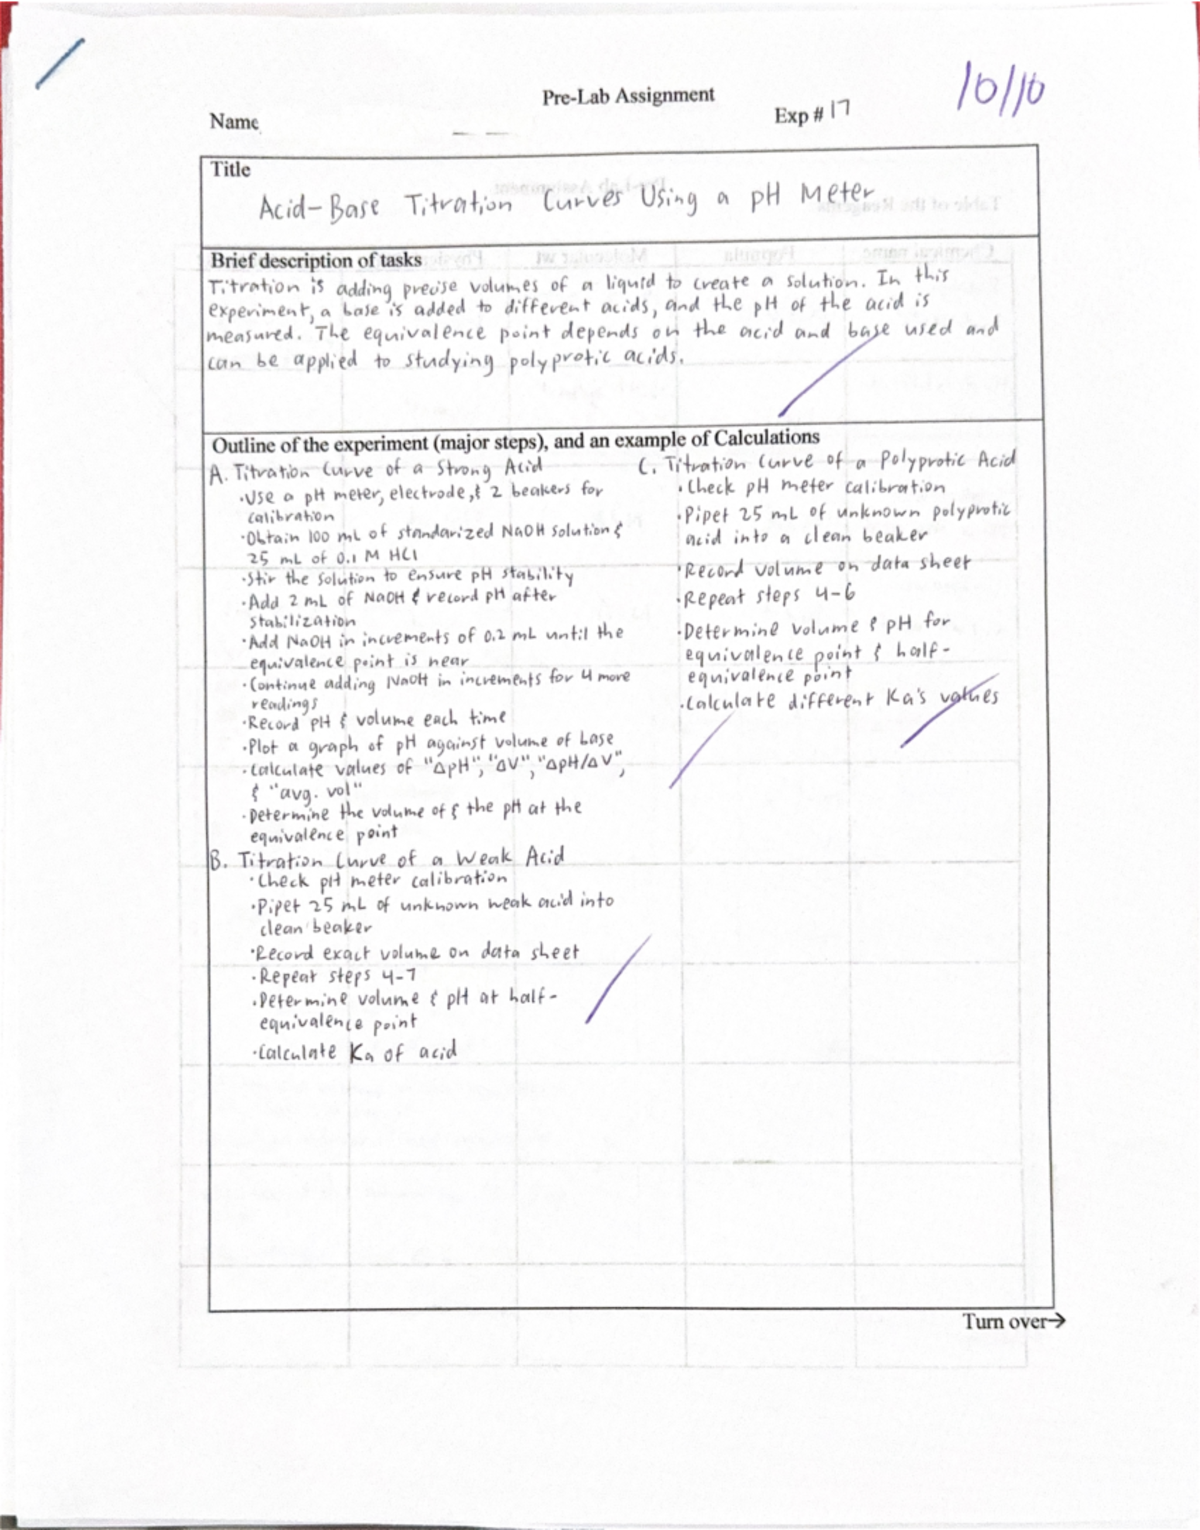 Pre-Lab Assignment
10/10
Name
Exp # 17
Title
Acid-Base Titration Curves Using a pH Meter
Brief description of tasks
Titration is adding precise volumes of a liquid to create a solution. In this
experiment, a base is added to different acids, and the pH of the acid is
measured. The equivalence point depends on the acid and base used and
can be applied to studying polyprotic acids.
Outline of the experiment (major steps), and an example of Calculations
A. Titration Curve of a Strong Acid
·Use a pH meter, electrode, & 2 beakers for
calibration
·Obtain 100 mL of standarized NaOH solution &
25 mL of 0.1 M HCl
·Stir the solution to ensure pH stability
·Add 2 mL of NaOH & record pH after
stabilization
·Add NaOH in increments of 0.2 mL until the
equivalence point is near
·Continue adding NaOH in increments for 4 more
readings
·Record pH & volume each time
·Plot a graph of pH against volume of base
·Calculate values of "ΔpH", "ΔV", "ΔpH/ΔV",
& "avg. vol"
·Determine the volume of & the pH at the
equivalence point
B. Titration Curve of a Weak Acid
·Check pH meter calibration
·Pipet 25 mL of unknown weak acid into
clean beaker
·Record exact volume on data sheet
·Repeat steps 4-7
·Determine volume & pH at half-
equivalence point
·Calculate Ka of acid
C. Titration Curve of a Polyprotic Acid
·Check pH meter calibration
·Pipet 25 mL of unknown polyprotic
acid into a clean beaker
·Record volume on data sheet
·Repeat steps 4-6
·Determine volume & pH for
equivalence point & half-
equivalence point
·Calculate different Ka's values
Turn over→